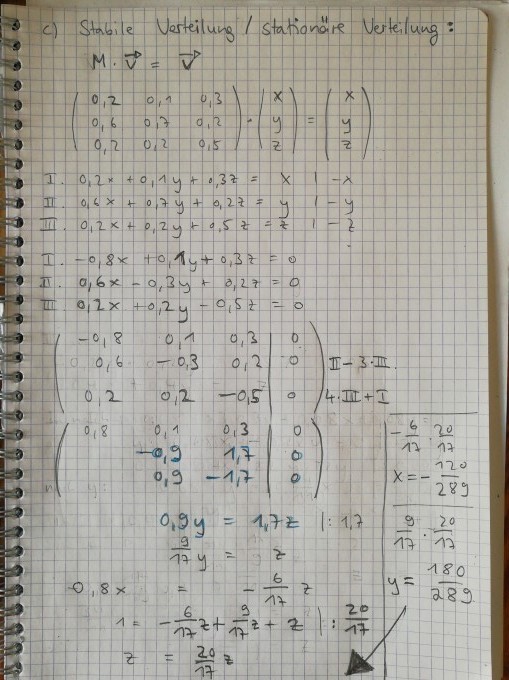 c) Stabile Verteilung / stationäre Verteilung:
M · v⃗ = v⃗
( 0,2 0,1 0,3 ) ( x ) ( x )
( 0,6 0,7 0,2 ) · ( y ) = ( y )
( 0,2 0,2 0,5 ) ( z ) ( z )
I. 0,2x + 0,1y + 0,3z = x | -x
II. 0,6x + 0,7y + 0,2z = y | -y
III. 0,2x + 0,2y + 0,5z = z | -z
I. -0,8x + 0,1y + 0,3z = 0
II. 0,6x - 0,3y + 0,2z = 0
III. 0,2x + 0,2y - 0,5z = 0
( -0,8 0,1 0,3 | 0 )
( 0,6 -0,3 0,2 | 0 ) II - 3·III
( 0,2 0,2 -0,5 | 0 ) 4·III + I
( 0,8 0,1 0,3 | 0 )
( -0,9 1,7 | 0 )
( 0,9 -1,7 | 0 )
0,9y = 1,7z |: 1,7
9/17 y = z
-0,8x = -6/17 z
1 = -6/17 z + 9/17 z + z |: 20/17
z = 20/17 z
-6/17 · 20/17
x = -120/289
9/17 · 20/17
y = 180/289